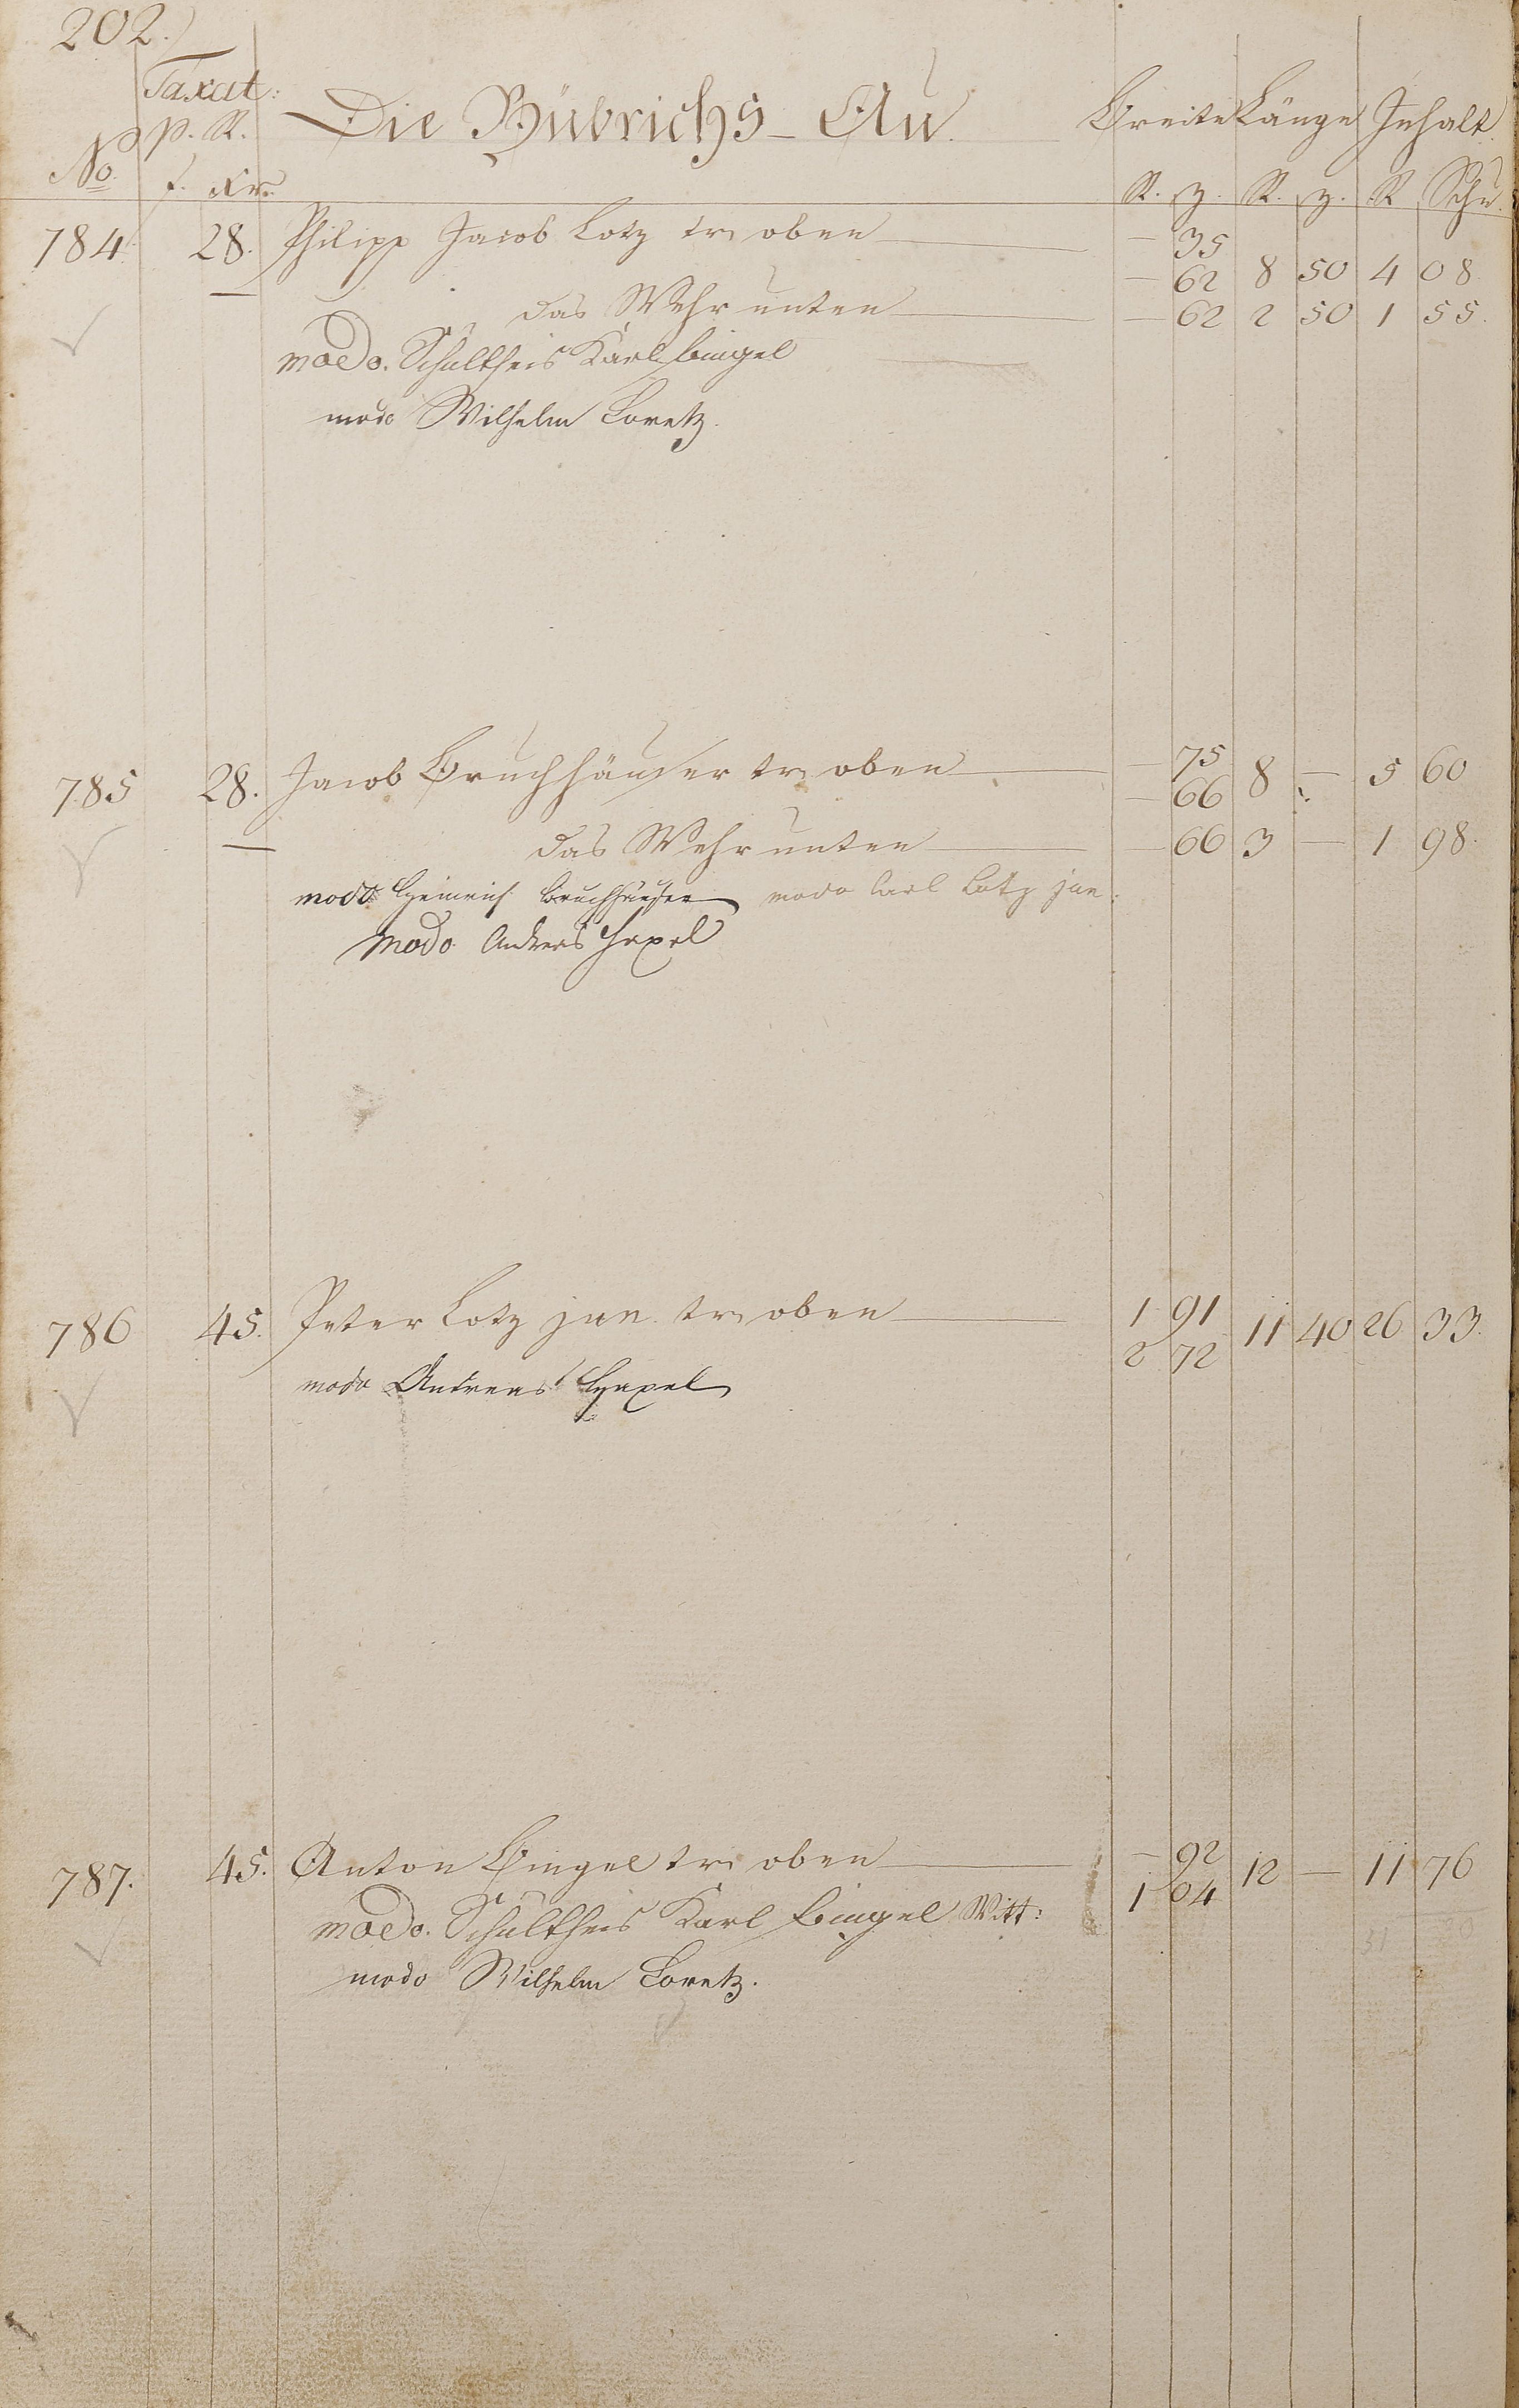 202.
Taxat:
p. R.
Die Bübrichs-Au.
Breite Länge Inhalt.
No. f. Xr.
R. z. R. z. R Schu.
784. 28. Philipp Jacob Lotz tr: oben — 35
— 62 8 50 4 08
— das Wehr unten — 62 2 50 1 55.
modo. Schultheis Karl Bingel
modo Wilhelm Loretz.
785 28. Jacob Bruchhäuser tr: oben — 75
— 66 8 — 5 60
— das Wehr unten — 66 3 — 1 98.
modo Heinrich Bruchhäuser modo Carl Lotz jun:
modo Andreas Hepel
786 45. Peter Lotz jun. tr: oben 1 91
2 72 11 40 26 33.
modo Andreas Hepel
787. 45. Anton Bingel tr: oben — 92
1 04 12 — 11 76
modo. Schultheis Karl Bingel Witt:
modo Wilhelm Loretz.